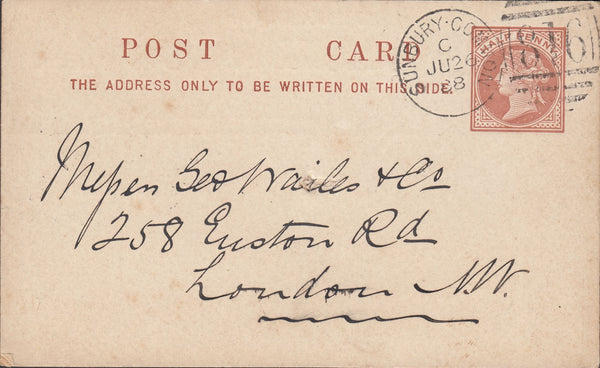 POST CARD
THE ADDRESS ONLY TO BE WRITTEN ON THIS SIDE.
HALF PENNY
SUNBURY-CO
C
JU 26
88
Messrs Geo Wailes & Co
258 Euston Rd
London N.W.